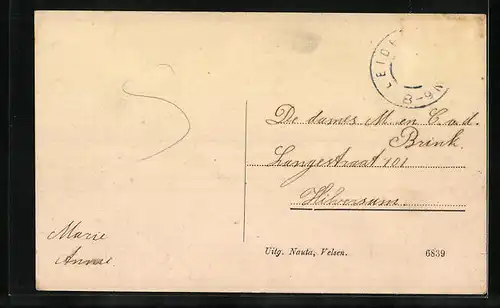 LEID
8-9N
De dames M. en C. v. d.
Brink.
Langestraat 101
Hilversum.
Marie
Annae
Uitg. Nauta, Velsen.
6839